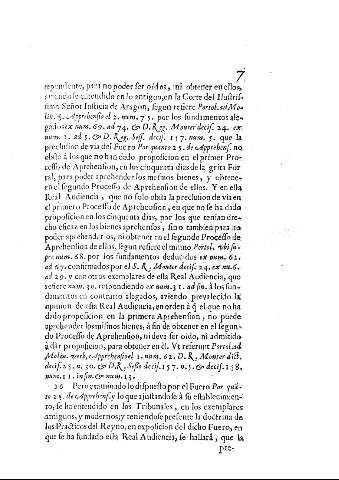 7
rependente, para no poder ser oidos, ni obtener en ellos,
entendido en lo antiguo, en la Corte del Ilustris-
simo Señor Iusticia de Aragon, segun refiere Portol. ad Mo-
lin. §. Aprehensio el 2. num. 75. por los fundamentos ale-
gados ex num. 69. ad 74. & D. Reg. Monter decis. 24. ex
num. 1. ad 5. & D. Reg. Sess. decis. 157. num. 5. que la
preclusion de via del Fuero Por quanto 25. de Apprehens. no
obsta à los que no han dado proposicion en el primer Pro-
cesso de Aprehension, en los cinquenta dias de la grita For
ral, para poder aprehender los mesmos bienes, y obtener
en el segundo Processo de Aprehension de ellos. Y en esta
Real Audiencia, que no solo obsta la preclusion de via en
el primero Processo de Aprehension, en que no se ha dado
proposicion en los cinquenta dias, por los que tenian dre-
cho eficaz en los bienes aprehensos, sino tambien para no
poder aprehenderlos, ni obtener en el segundo Processo de
Aprehension de ellos, segun refiere el mismo Portol. ubi su-
pra num. 68. por los fundamentos deducidos ex num. 62.
ad 67. confirmados por el S. R. Monter decis. 24. ex n. 6.
ad 29. y con otros exemplares de esta Real Audiencia, que
refiere num. 30. respondiendo ex num. 31. ad fin. à los fun-
damentos en contrario alegados, aviendo prevalecido la
opinion de esta Real Audiencia, en orden à q̃ el que no ha
dado proposicion en la primera Aprehension, no puede
aprehender los mismos bienes, à fin de obtener en el segun-
do Processo de Aprehension, ni deve ser oido, ni admitido
à dàr proposicion, para obtener en èl. Vt referunt Portol. ad
Molin. verb. Apprehensio el 2. num. 62. D. R. Monter dict.
decis. 25. n. 30. & D. R. Sesse decis. 157. n. 5. & decis. 158.
num. 11. in fin. & num. 13.
26 Pero examinado lo dispuesto por el Fuero Por quã-
to 25. de Apprehens. y lo que ajustandose à su establecimien-
to, se ha entendido en los Tribunales, en los exemplares
antiguos, y modernos; y teniendose presente la doctrina de
los Practicos del Reyno, en exposicion del dicho Fuero, en
que se ha fundado esta Real Audiencia, se hallarà, que la
pre-